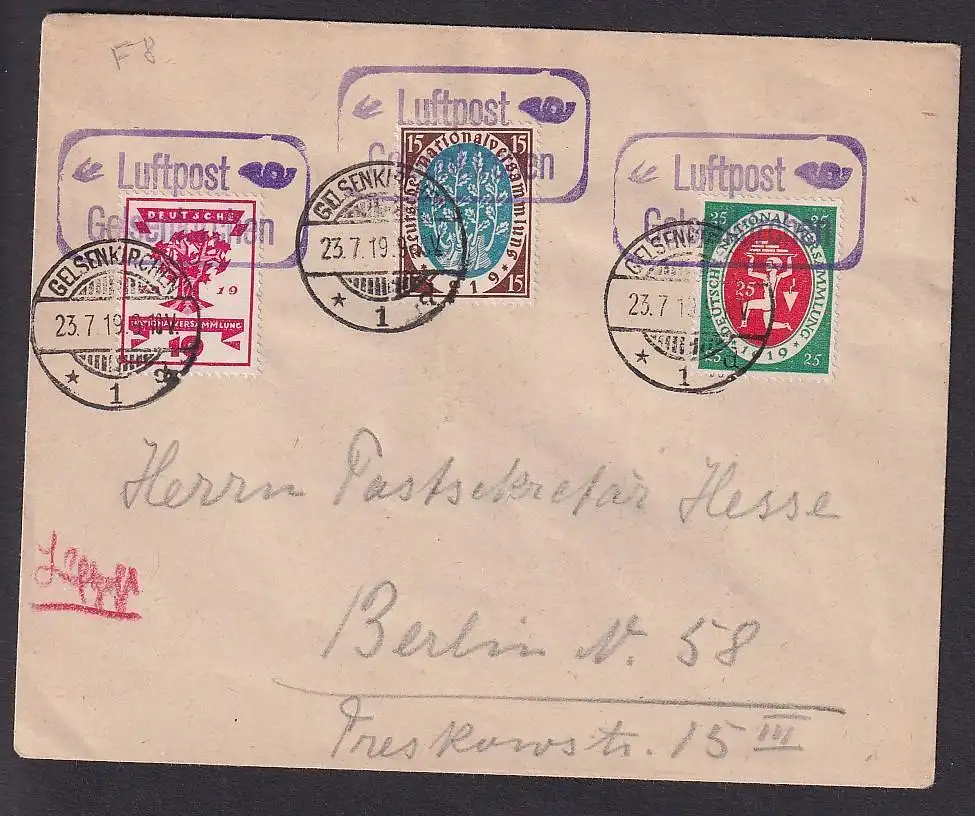 F 8.
Luftpost
Gelsenkirchen
Luftpost
Gelsenkirchen
Luftpost
DEUTSCHE
19
NATIONALVERSAMMLUNG
10
15 15
Deutsche Nationalversammlung
1919
15
25 25
DEUTSCHE NATIONALVERSAMMLUNG
25
1919
25 25
GELSENKIRCHEN
23.7.19.
* 1 d
GELSENKIRCHEN
23.7.19.
* 1 d
23.7.19
* 1 d
Herrn Postsekretär Hesse
Luftpost
Berlin N. 58
Treskowstr. 15 III